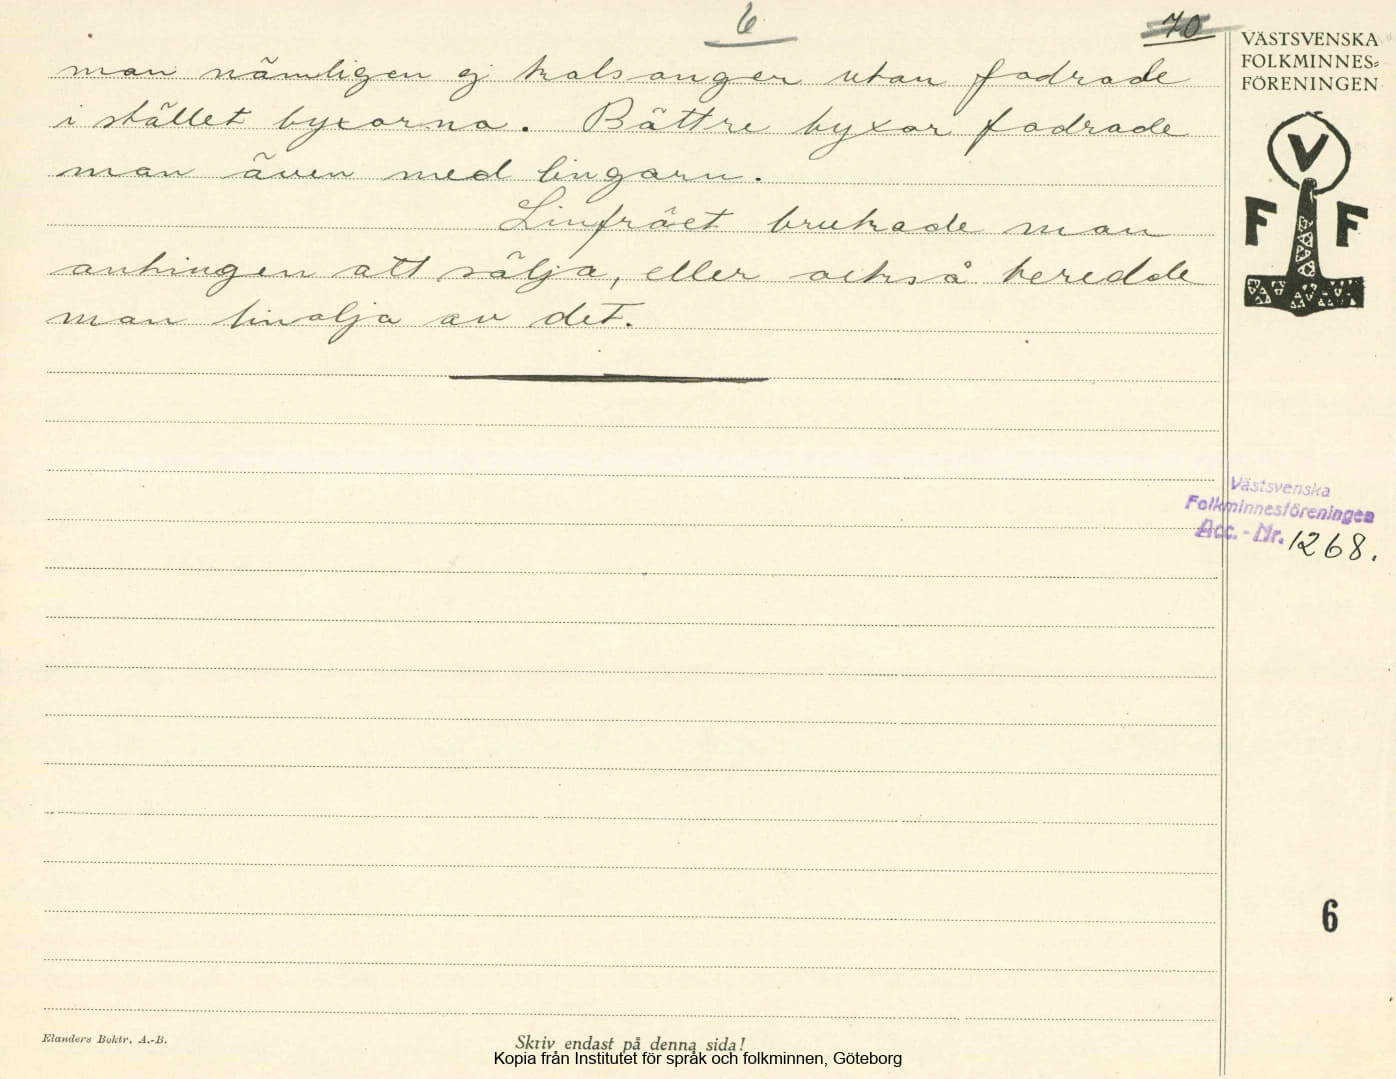 6
70
VÄSTSVENSKA
FOLKMINNES-
FÖRENINGEN
V
F F
man nämligen ej kalsonger utan fodrade
i stället byxorna. Bättre byxor fodrade
man även med lingarn.
Linfröet brukade man
antingen att sälja, eller också beredde
man linolja av det.
Västsvenska
Folkminnesföreningen
Acc. - Nr. 1268.
6
Elanders Boktr. A.-B.
Skriv endast på denna sida!
Kopia från Institutet för språk och folkminnen, Göteborg